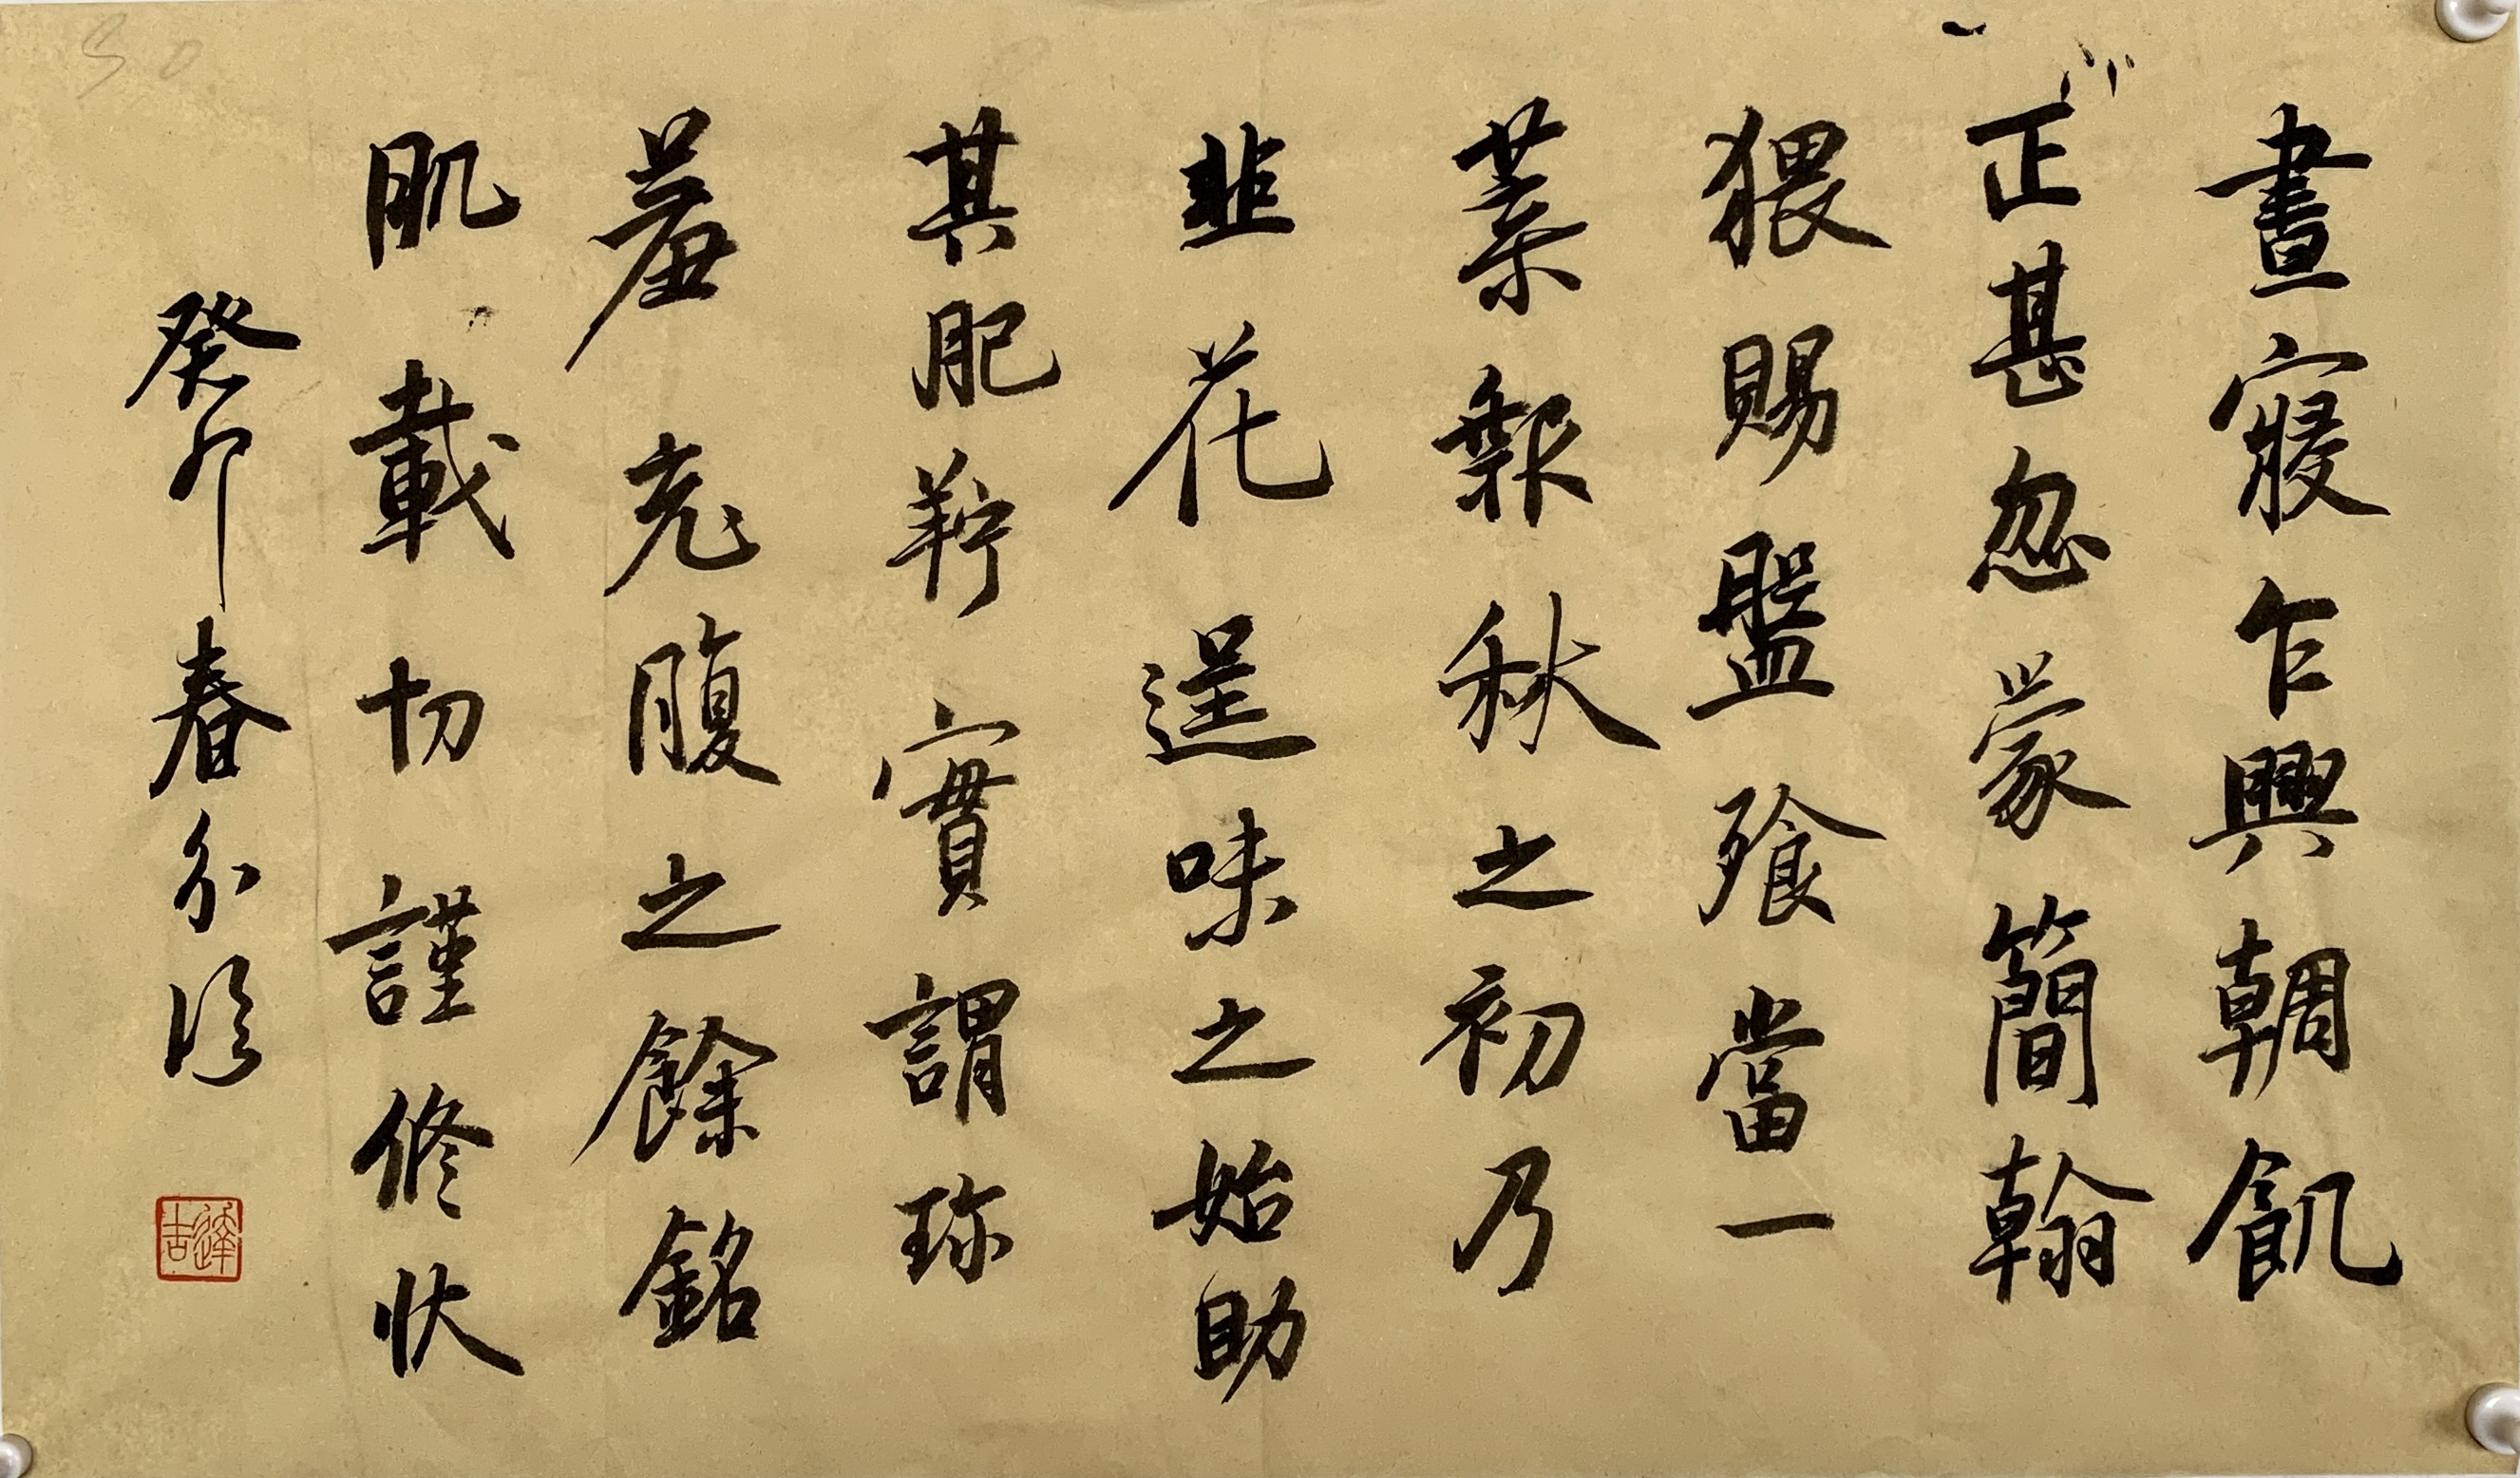 晝寢乍興輖飢
正甚忽蒙簡翰
猥賜盤飧當一
葉報秋之初乃
韭花逞味之始助
其肥羜實謂珍
羞充腹之餘銘
肌載切謹修狀
癸卯春分
達吉